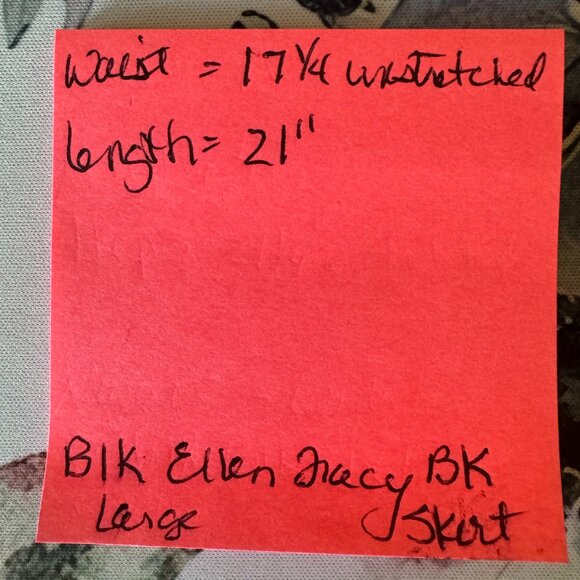 Waist = 17 1/4 unstretched
length = 21"
Blk Ellen Tracy BK
Large Skirt